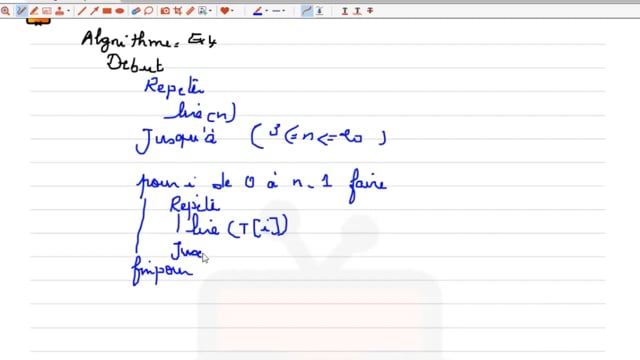 Algorithme: Ex
Debut
Repeter
lire(n)
Jusqu'à (3<=n<=20)
pour i de 0 à n-1 faire
Repété
lire (T[i])
Jus
finpour